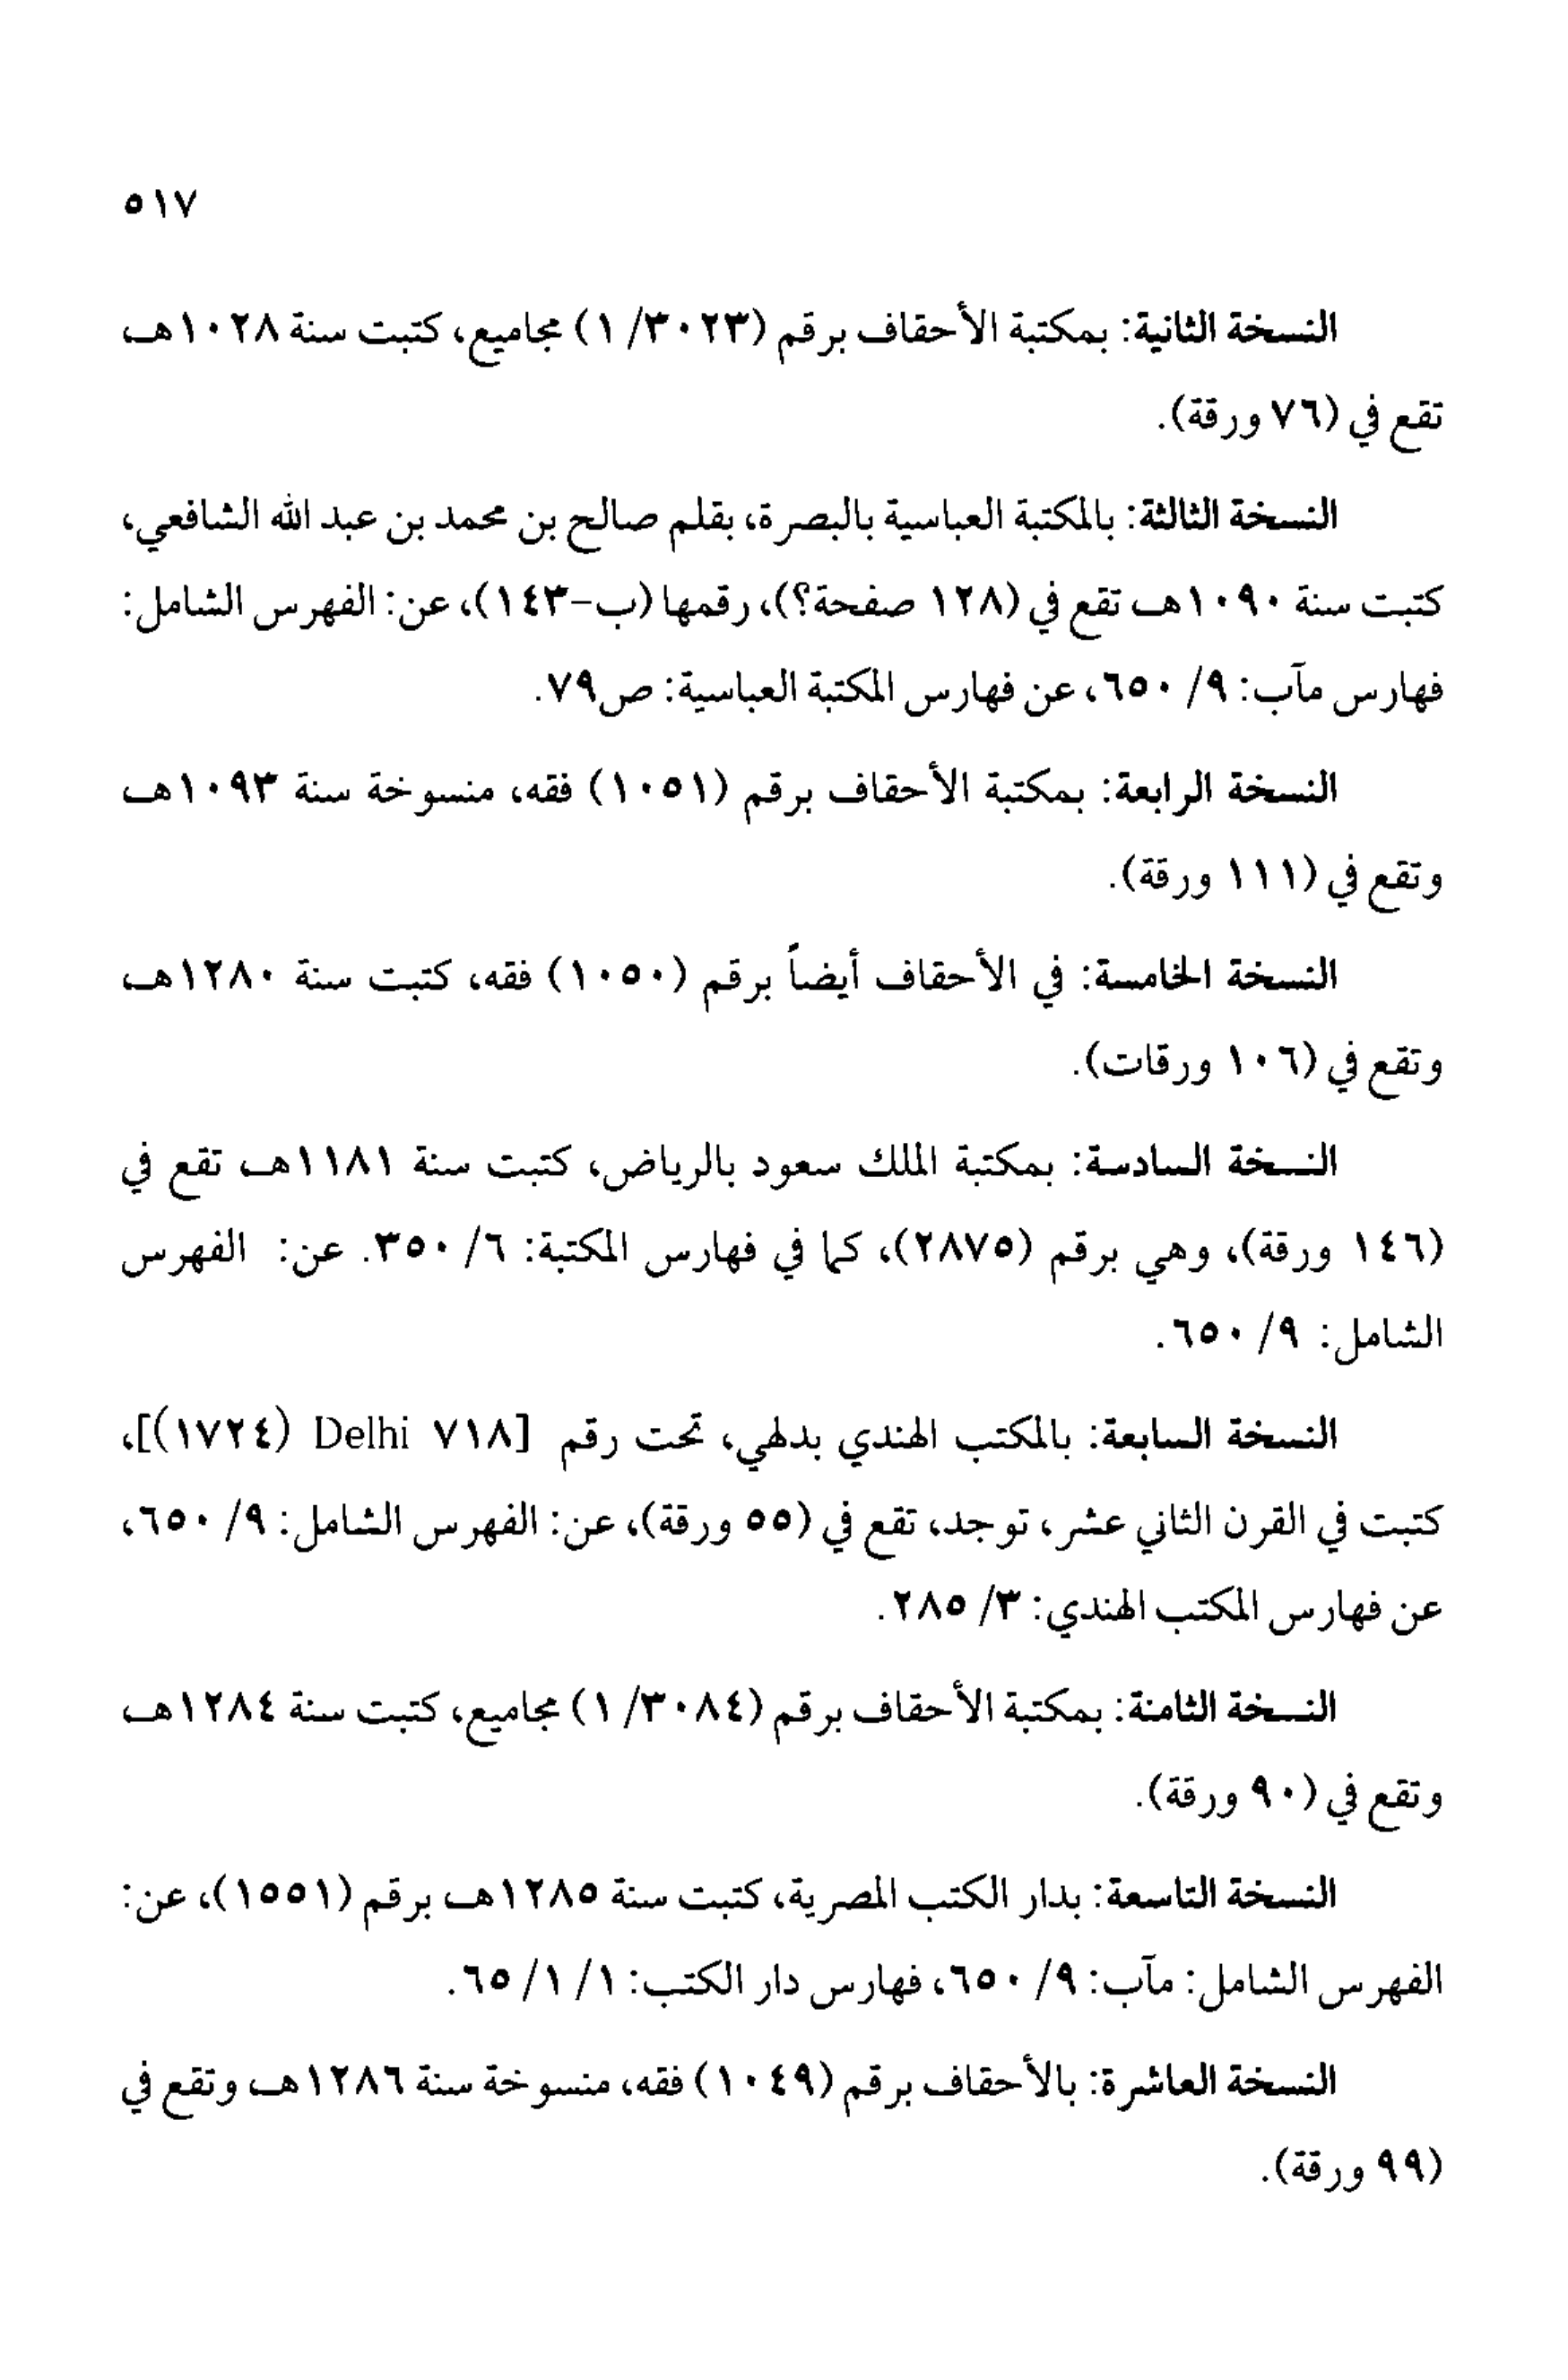 ٥١٧
النسخة الثانية: بمكتبة الأحقاف برقم (٣٠٢٣/ ١) مجاميع، كتبت سنة ١٠٢٨هـ
تقع في (٧٦ ورقة).
النسخة الثالثة: بالمكتبة العباسية بالبصرة، بقلم صالح بن محمد بن عبد الله الشافعي،
كتبت سنة ١٠٩٠هـ تقع في (١٢٨ صفحة؟)، رقمها (ب-١٤٣)، عن: الفهرس الشامل:
فهارس مآب: ٩/ ٦٥٠، عن فهارس المكتبة العباسية: ص٧٩.
النسخة الرابعة: بمكتبة الأحقاف برقم (١٠٥١) فقه، منسوخة سنة ١٠٩٣هـ
وتقع في (١١١ ورقة).
النسخة الخامسة: في الأحقاف أيضاً برقم (١٠٥٠) فقه، كتبت سنة ١٢٨٠هـ
وتقع في (١٠٦ ورقات).
النسخة السادسة: بمكتبة الملك سعود بالرياض، كتبت سنة ١١٨١هـ تقع في
(١٤٦ ورقة)، وهي برقم (٢٨٧٥)، كما في فهارس المكتبة: ٦/ ٣٥٠. عن: الفهرس
الشامل: ٩/ ٦٥٠.
النسخة السابعة: بالمكتب الهندي بدلهي، تحت رقم [٧١٨ Delhi (١٧٢٤)]،
كتبت في القرن الثاني عشر، توجد، تقع في (٥٥ ورقة)، عن: الفهرس الشامل: ٩/ ٦٥٠،
عن فهارس المكتب الهندي: ٣/ ٢٨٥.
النسخة الثامنة: بمكتبة الأحقاف برقم (٣٠٨٤/ ١) مجاميع، كتبت سنة ١٢٨٤هـ
وتقع في (٩٠ ورقة).
النسخة التاسعة: بدار الكتب المصرية، كتبت سنة ١٢٨٥هـ برقم (١٥٥١)، عن:
الفهرس الشامل: مآب: ٩/ ٦٥٠، فهارس دار الكتب: ١/ ١/ ٦٥.
النسخة العاشرة: بالأحقاف برقم (١٠٤٩) فقه، منسوخة سنة ١٢٨٦هـ وتقع في
(٩٩ ورقة).